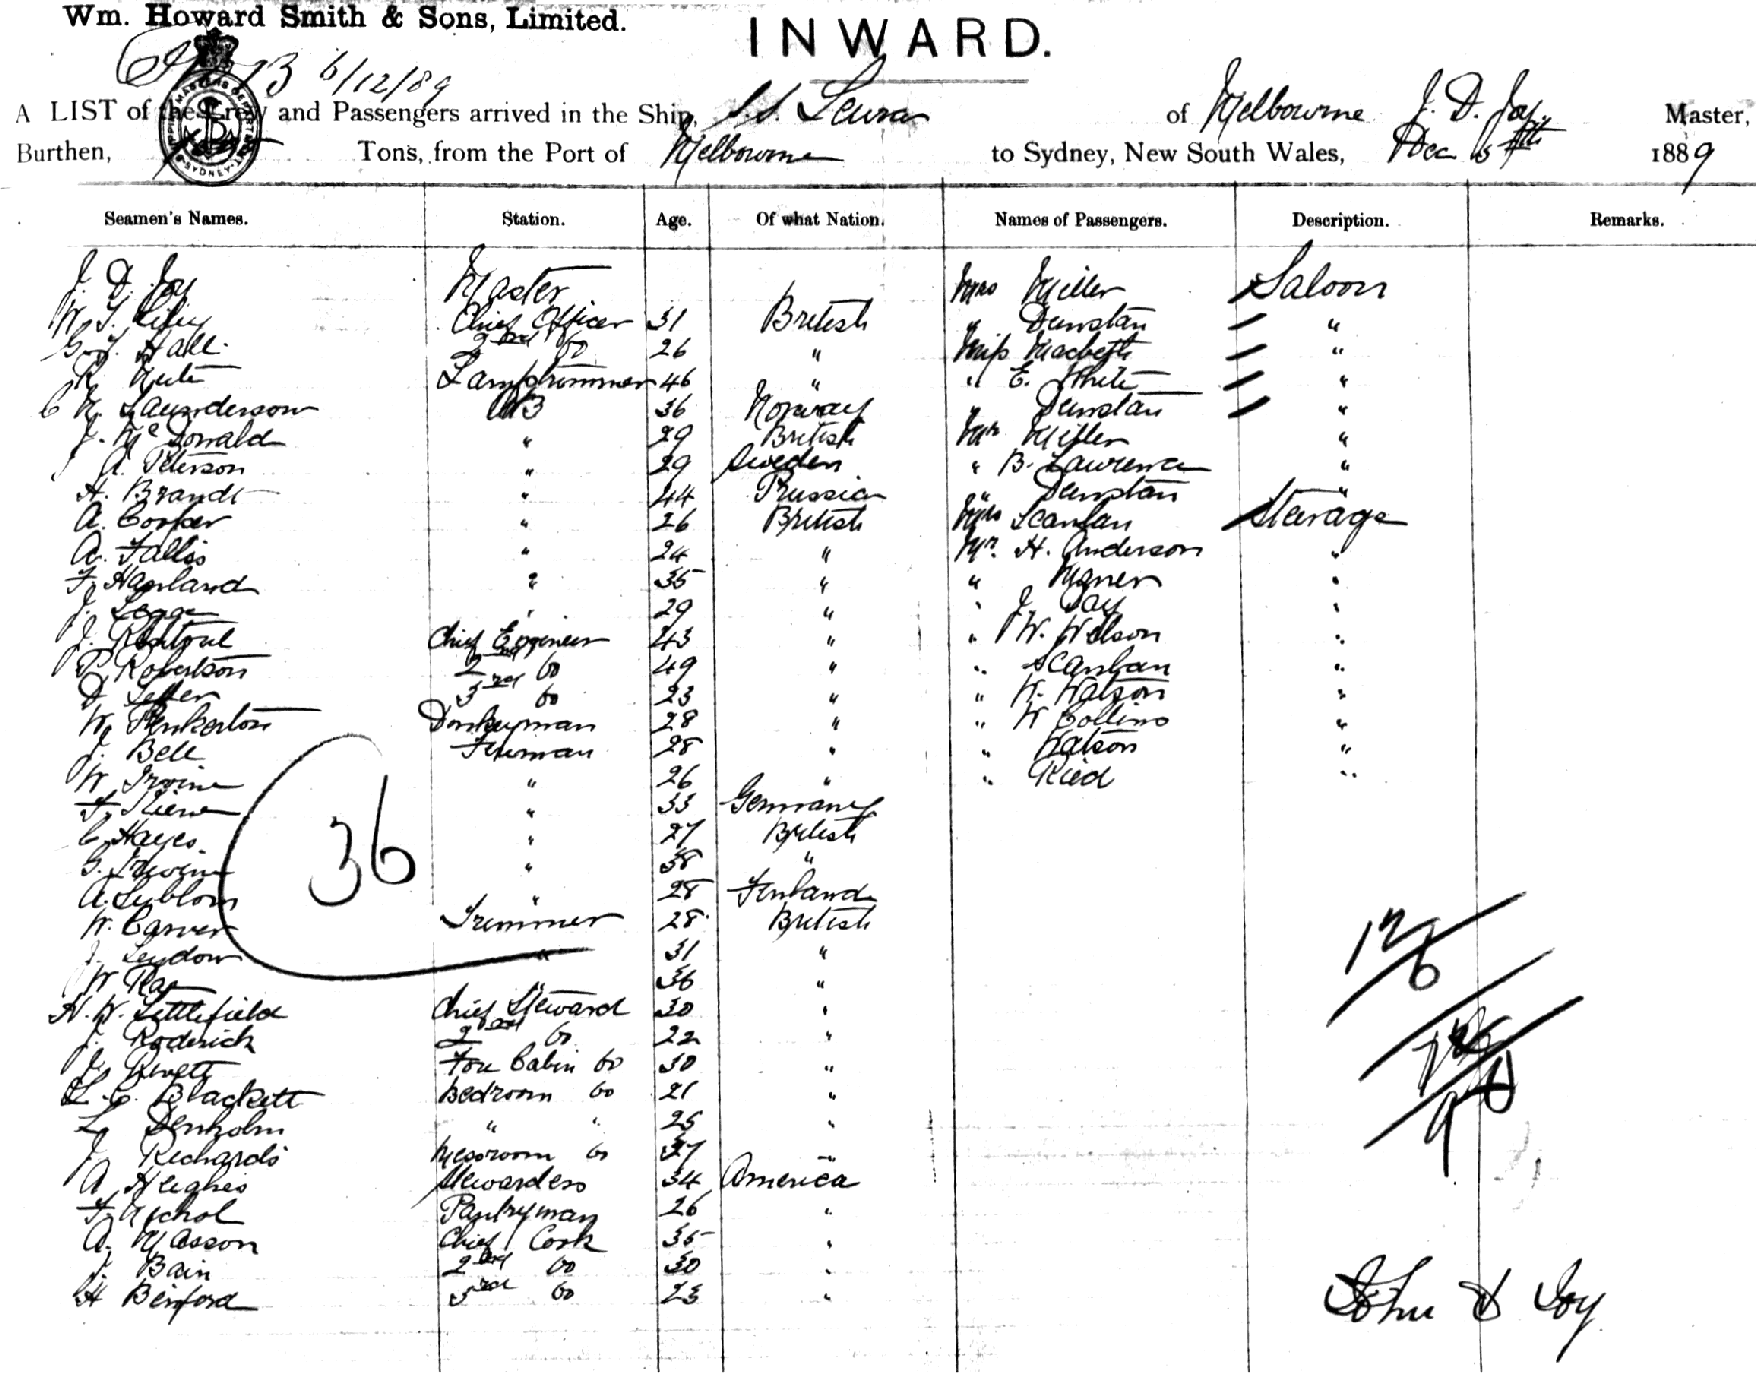 Wm. Howard Smith & Sons, Limited.
INWARD.
6/12/89
A LIST of the Crew and Passengers arrived in the Ship, S.S. Leura of Melbourne J. D. Joy Master,
Burthen, Tons, from the Port of Melbourne to Sydney, New South Wales, Dec 1889
Seamen's Names. Station. Age. Of what Nation. Names of Passengers. Description. Remarks.
J. D. Joy Master Mrs Miller Saloon
W. Chief Officer 31 British " Dunstan "
G. Hall 2nd Do 26 " Miss Macbeth "
R. Lamptrimmer 46 " " E. White "
C. N. Saunderson AB 36 Norway " Dunstan "
J. McDonald " 29 British Mr Miller "
A. Peterson " 29 Sweden " B. Lawrence "
H. Brandt " 44 Prussian " Dunstan "
A. Cooper " 26 British Mrs Scanlan Steerage
A. Fallis " 24 " Mr. H. Anderson "
F. Hagland " 35 " " "
J. Legge " 29 " " J. Day "
J. Rentoul Chief Engineer 43 " " W. Wilson "
P. Robertson 2nd Do 49 " " Scanlan "
D. 3rd Do 23 " " W. Watson "
W. Pinkerton Donkeyman 28 " " W Collins "
J. Bell Fireman 28 " " Watson "
W. Irvine " 26 " " Ried "
F. " 33 Germany
C. Hayes " 27 British
G. Irvine " 38 "
A. " 28 Finland
W. Carver Trimmer 28 British
J. " 31 "
W Rae " 36 "
H. W. Littlefield Chief Steward 30 "
J. Roderick 2nd Do 22 "
J. Fore Cabin Do 30 "
L. C. Blackett Bedroom Do 21 "
L. Denholm " " 25 "
J. Richards Messroom Do 37 "
A. Hughes Stewardess 34 America
F. Nichol Pantryman 26 "
A. Masson Chief Cook 35 "
J. Bain 2nd Do 30 "
H Benford 3rd Do 23 "
36
12/6
John D Joy